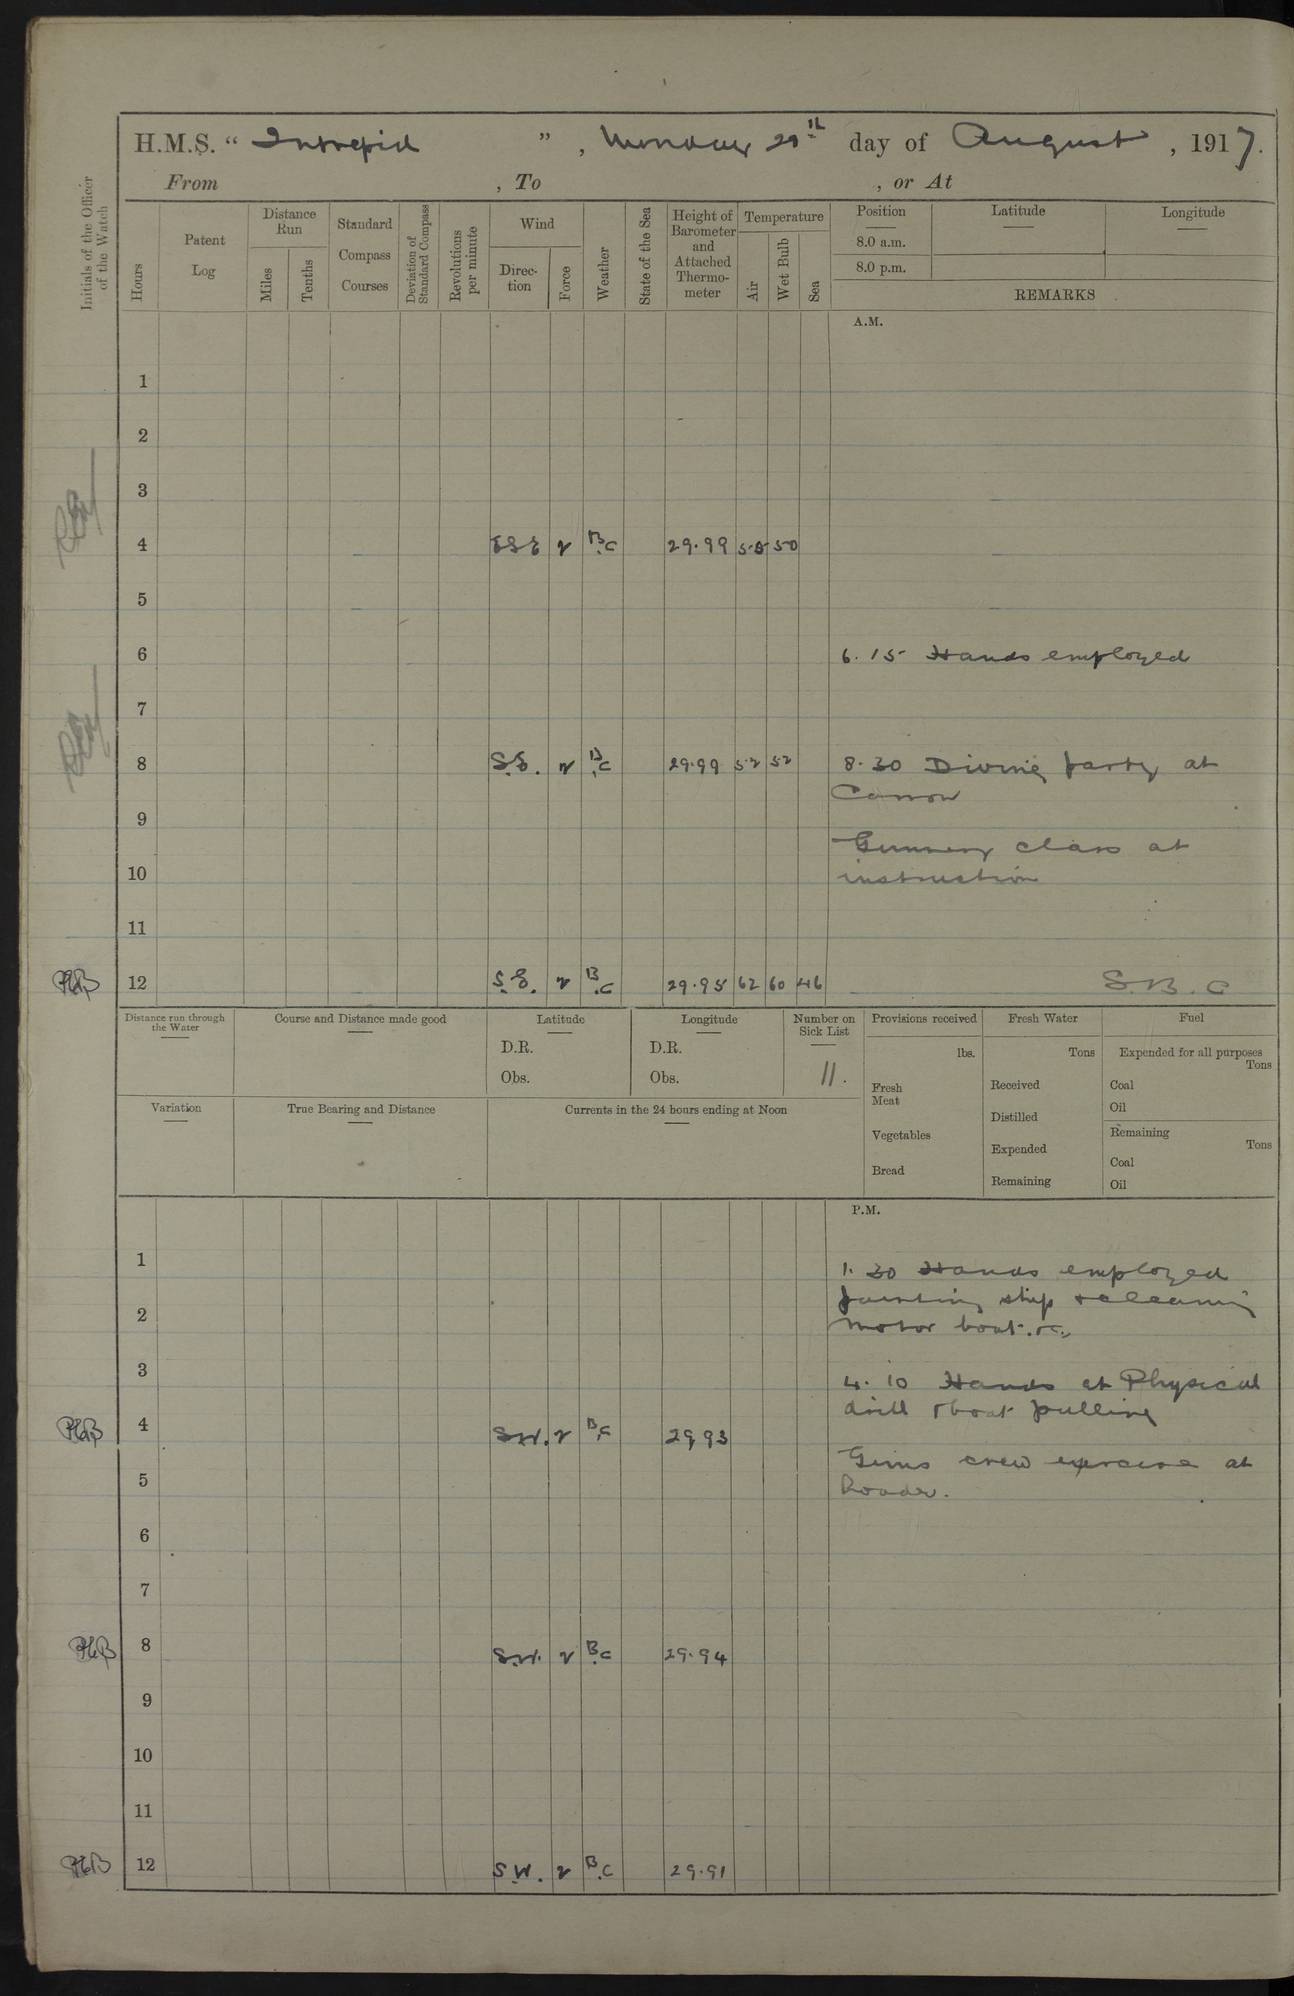 H.M.S. “ Intrepid ” , Monday 20th day of August , 1917.
From , To , or At
Initials of the Officer of the Watch
Hours
Patent Log
Distance Run
Miles
Tenths
Standard Compass Courses
Deviation of Standard Compass
Revolutions per minute
Wind
Direction
Force
Weather
State of the Sea
Height of Barometer and Attached Thermometer
Temperature
Air
Wet Bulb
Sea
Position
8.0 a.m.
8.0 p.m.
Latitude
Longitude
REMARKS
A.M.
1
2
3
4 ESE 2 B.C 29.99 50
5
6 6.15 Hands employed
7
8 S.E. 2 B.C 29.99 52 52 8.30 Diving party at
9
Gunnery class at
10 instruction
11
12 S.E. 2 B.C 29.95 62 60 46 S.B.C
Distance run through the Water
Course and Distance made good
Latitude
D.R.
Obs.
Longitude
D.R.
Obs.
Number on Sick List
11.
Provisions received
lbs.
Fresh Meat
Vegetables
Bread
Fresh Water
Tons
Received
Distilled
Expended
Remaining
Fuel
Expended for all purposes
Tons
Coal
Oil
Remaining
Tons
Coal
Oil
Variation
True Bearing and Distance
Currents in the 24 hours ending at Noon
P.M.
1 1.30 Hands employed
painting ship & cleaning
2 motor boat &c.
3 4.10 Hands at Physical
drill & boat pulling
4 S.W. 2 B.C 29.93
Guns crew exercise at
5 loader.
6
7
8 S.W. 2 B.C 29.94
9
10
11
12 S.W. 2 B.C 29.91